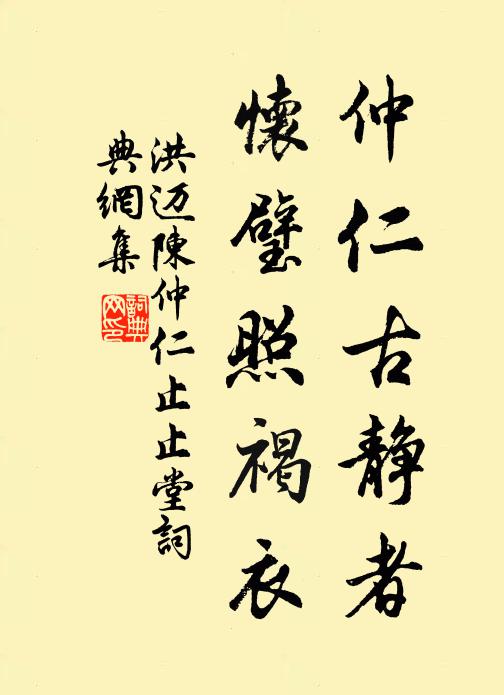 仲仁古静者
懷璧照褐衣
洪迈陳仲仁止止堂詞
典網集
詞典網印